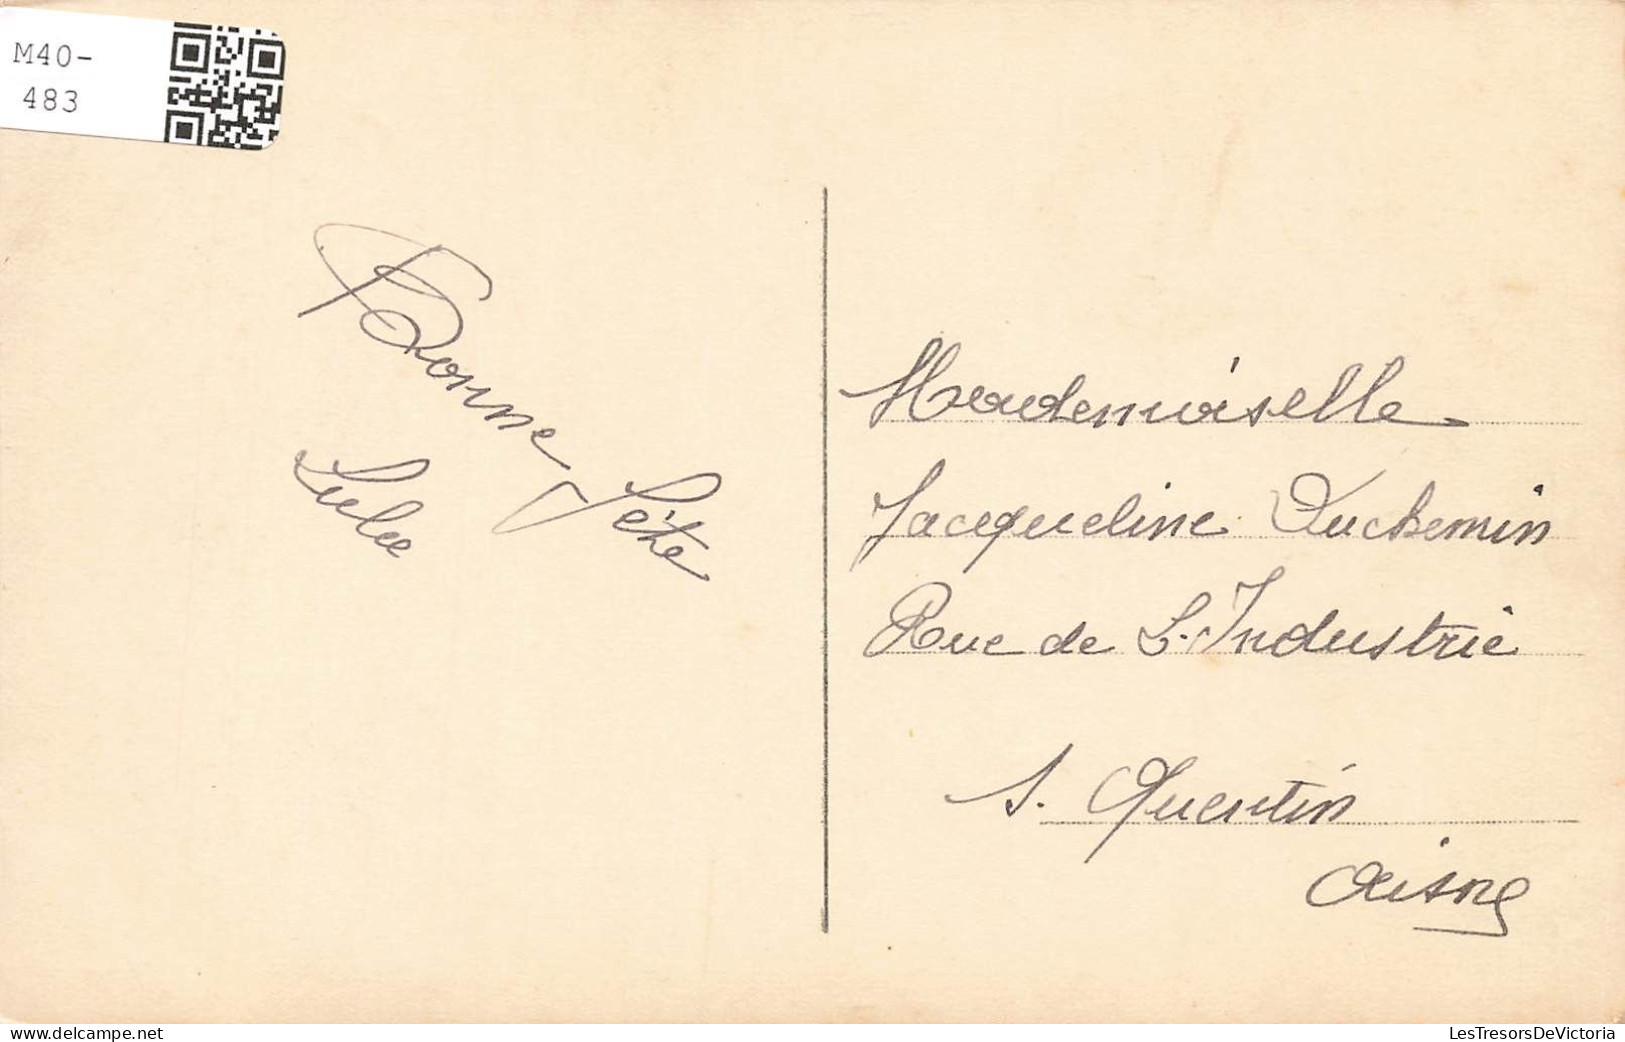 M40-
483
Bonne Fête
Lulu
Mademoiselle
Jacqueline Duchemin
Rue de L. Industrie
S. Quentin
Aisne
delcampe.net
LesTresorsDeVictoria